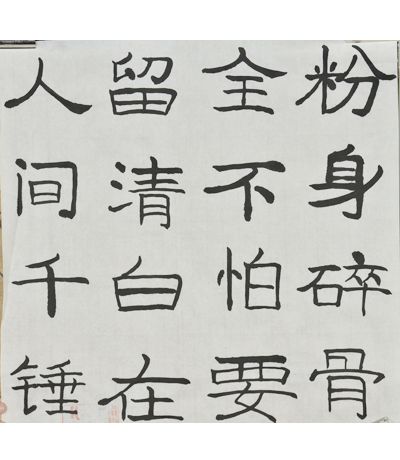 粉身碎骨
全不怕要
留清白在
人间千锤